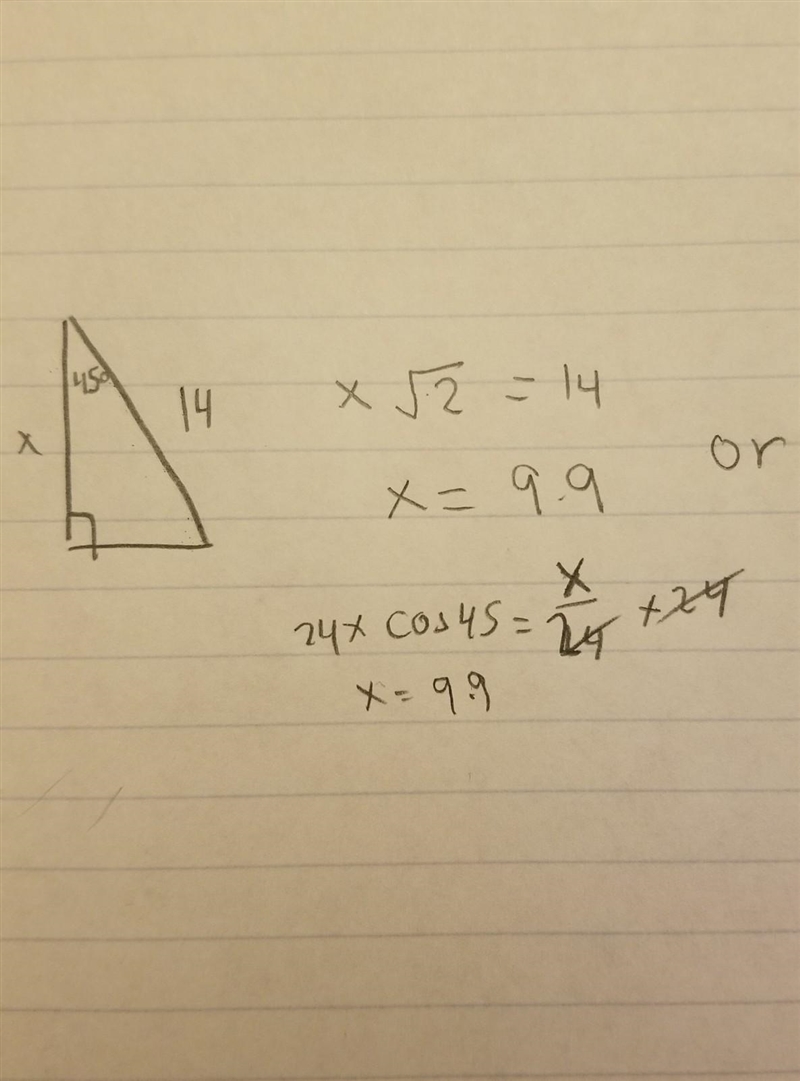 45°
x
14
x √2 = 14
x = 9.9
or
24 x cos 45 = x/24 x 24
x = 9.9